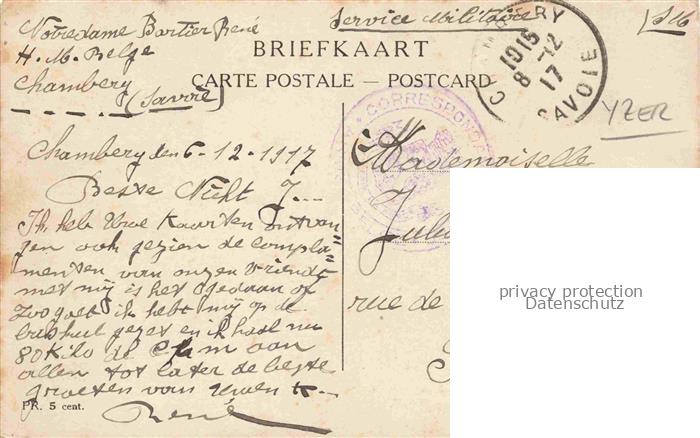 Notredame Bartier René
H. M. Belge
Chambery
(Savoie)
Service Militaire
(S M)
BRIEFKAART
CARTE POSTALE — POSTCARD
CHAMBERY
1915
8 - 12
17
SAVOIE
YZER
CORRESPOND
Chambery den 6-12-1917
Beste Nicht J....
Ik heb Uwe Kaarten ontvan=
gen ook gezien de compla=
menten van onzen vriend
met mij is het gedaan of
zoo goed ik hebt mij op de
gezet en ik haal nu
80 Kilo de aan
allen tot later de beste
groeten van Uwen K...
René
PR. 5 cent.
Mademoiselle
rue de
privacy protection
Datenschutz